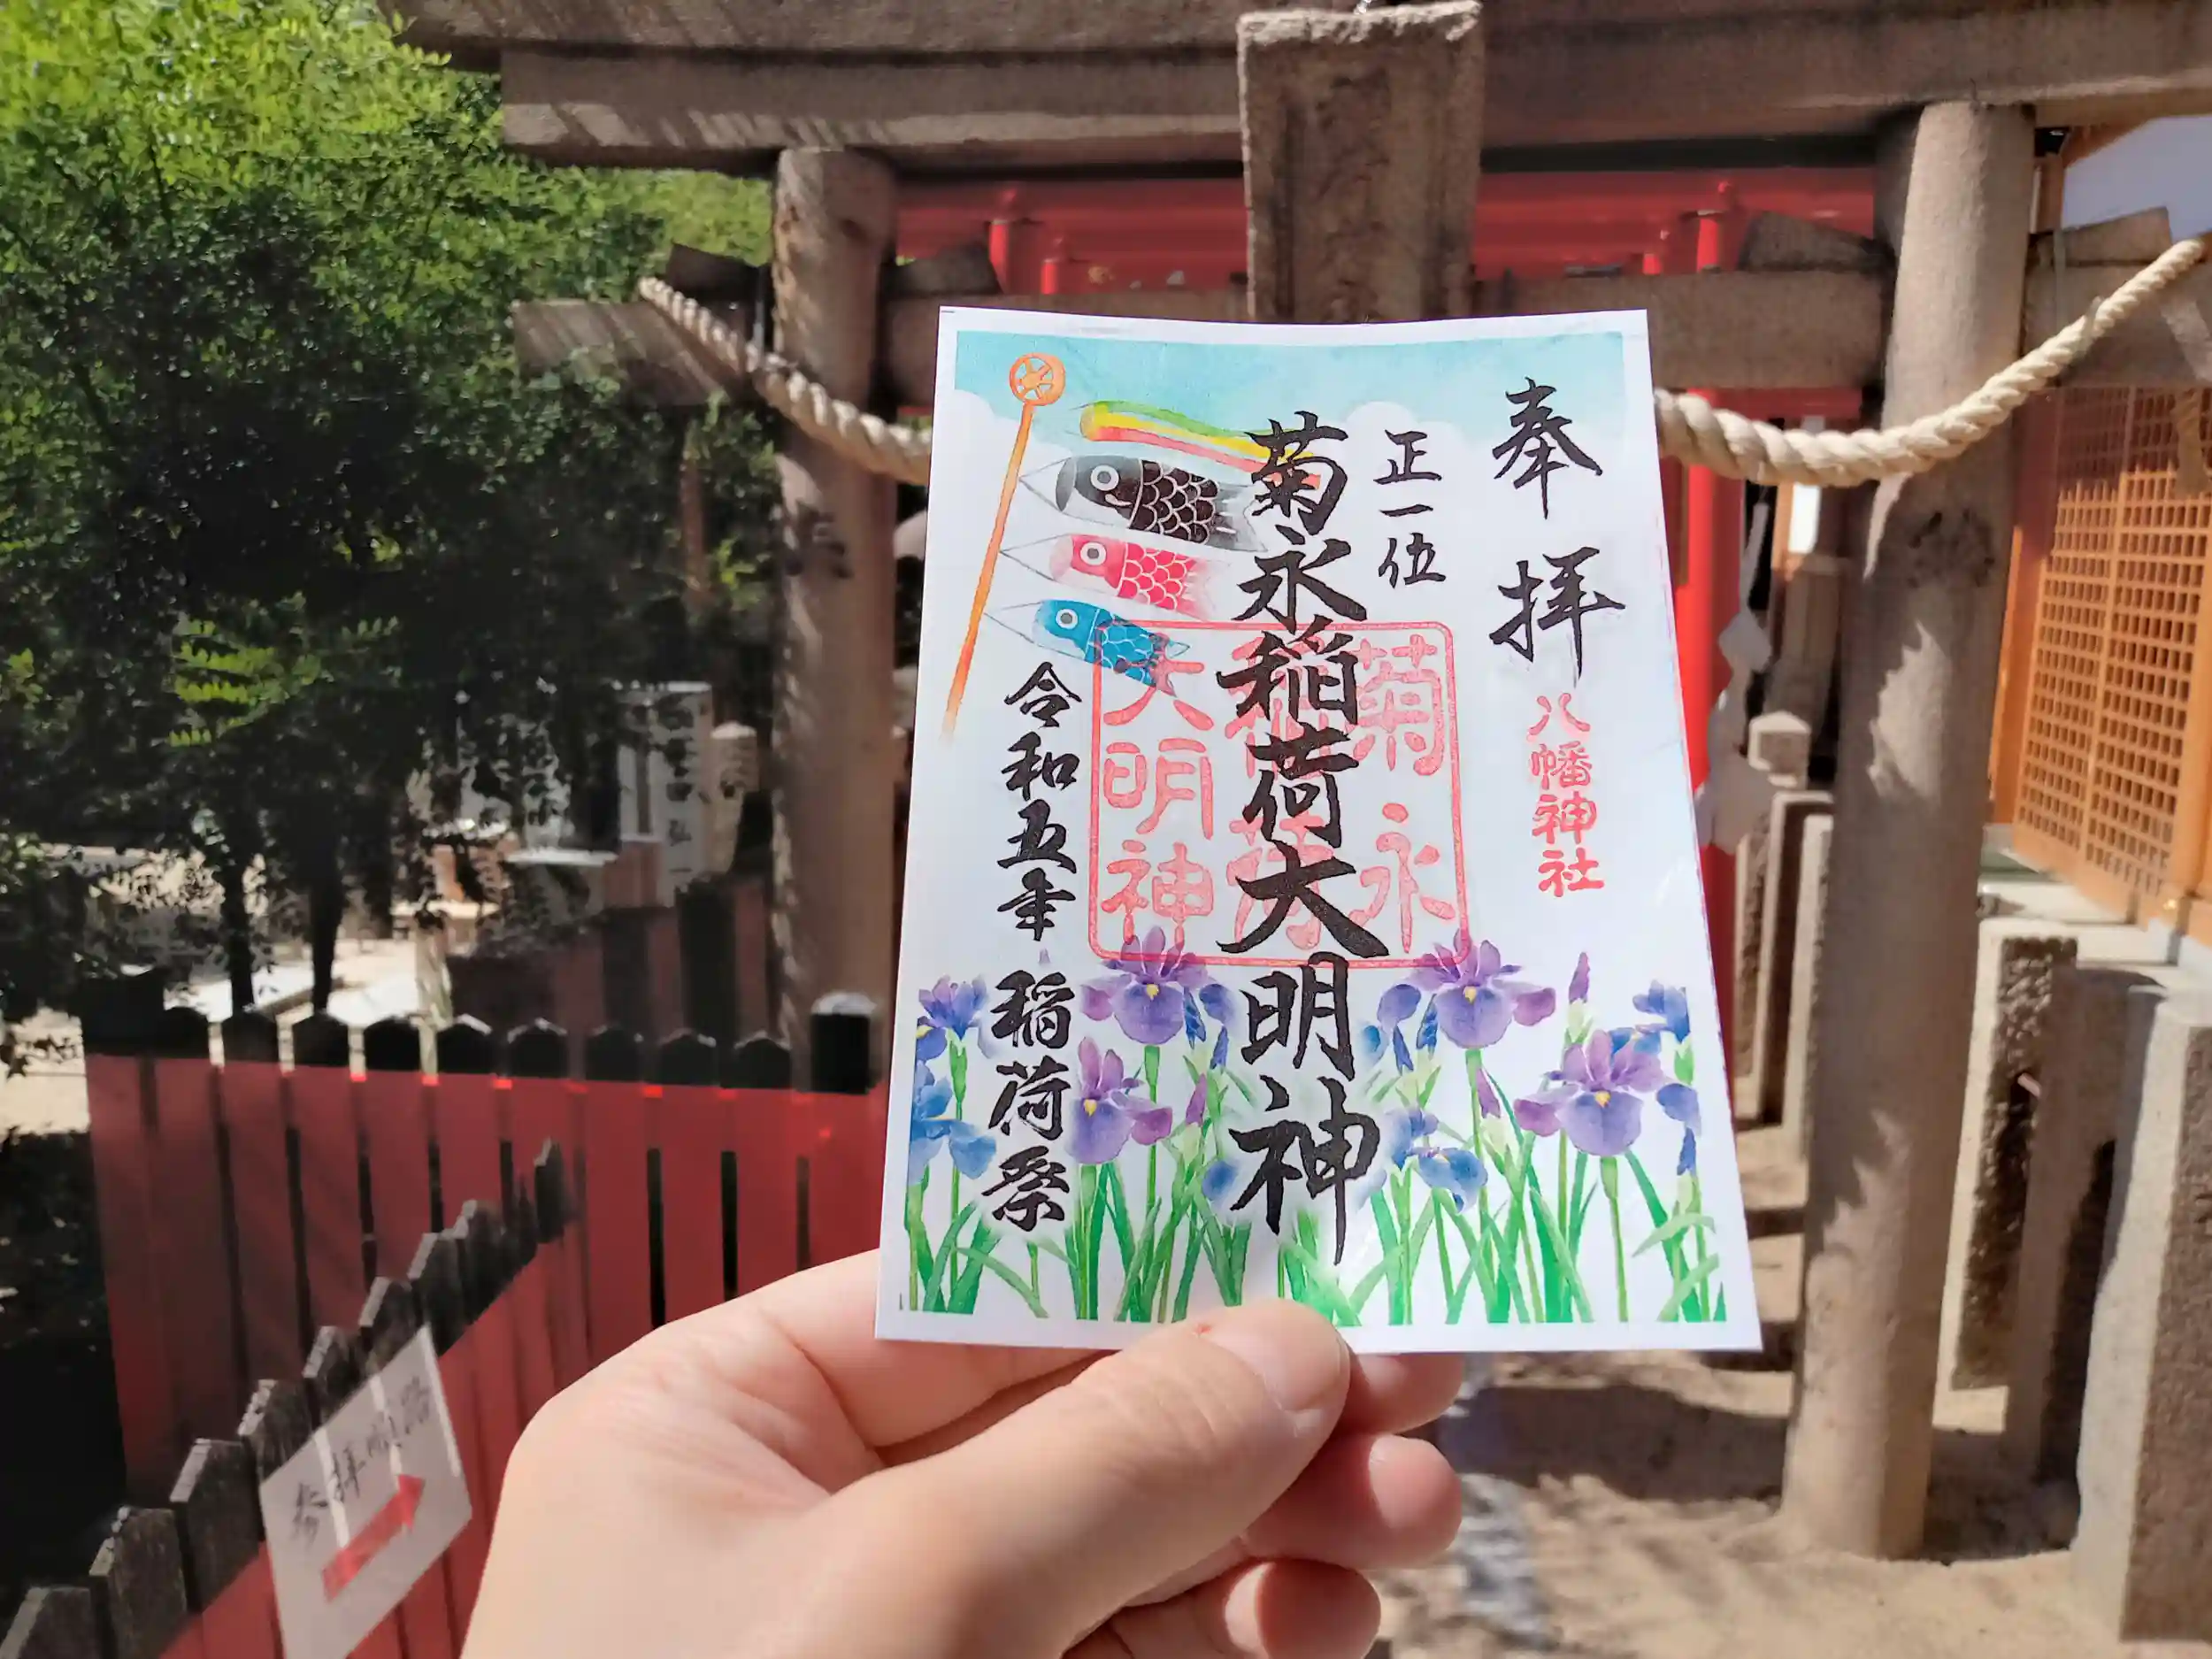 奉拝
八幡神社
正一位
菊永稲荷大明神
菊永
稲荷
大明神
令和五年 稲荷祭